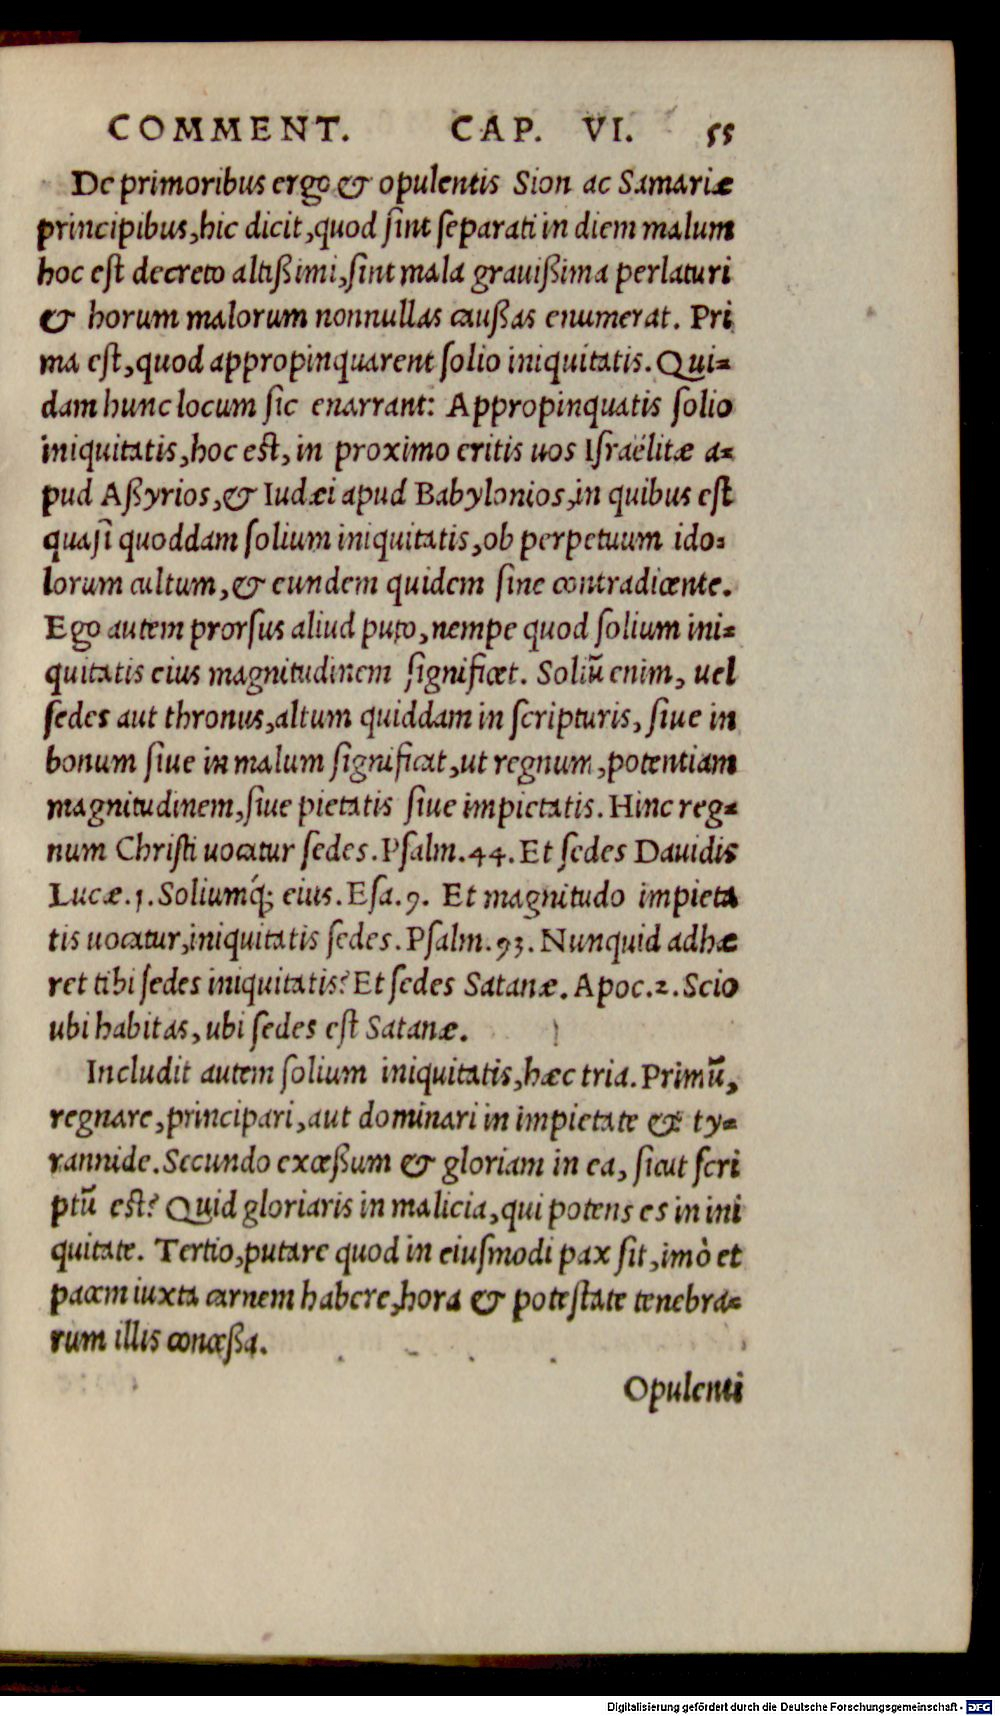 COMMENT. CAP. VI. 55
De primoribus ergo & opulentis Sion ac Samariæ
principibus, hic dicit, quod ſint ſeparati in diem malum
hoc eſt decreto altißimi, ſint mala grauißima perlaturi
& horum malorum nonnullas cauſſas enumerat. Pri
ma eſt, quod appropinquarent ſolio iniquitatis. Qui-
dam hunc locum ſic enarrant: Appropinquatis ſolio
iniquitatis, hoc est, in proximo eritis uos Iſraëlitæ a-
pud Aßyrios, & Iudæi apud Babylonios, in quibus eſt
quaſi quoddam ſolium iniquitatis, ob perpetuum ido-
lorum cultum, & eundem quidem ſine contradicente.
Ego autem prorſus aliud puto, nempe quod ſolium ini-
quitatis eius magnitudinem ſignificet. Soliũ enim, uel
ſedes aut thronus, altum quiddam in ſcripturis, ſiue in
bonum ſiue in malum ſignificat, ut regnum, potentiam
magnitudinem, ſiue pietatis ſiue impietatis. Hinc reg-
num Chriſti uocatur ſedes. Pſalm. 44. Et ſedes Dauidis
Lucæ. 1. Soliumq́; eius. Eſa. 9. Et magnitudo impieta
tis uocatur, iniquitatis ſedes. Pſalm. 93. Nunquid adhæ
ret tibi ſedes iniquitatis? Et ſedes Satanæ. Apoc. 2. Scio
ubi habitas, ubi ſedes eſt Satanæ.
Includit autem ſolium iniquitatis, hæc tria. Primũ,
regnare, principari, aut dominari in impietate & ty-
rannide. Secundo exceßum & gloriam in ea, ſicut ſcri
ptũ est? Quid gloriaris in malicia, qui potens es in ini
quitate. Tertio, putare quod in eiuſmodi pax ſit, imò et
pacem iuxta carnem habere, hora & poteſtate tenebra-
rum illis conceßa.
Opulenti
Digitalisierung gefördert durch die Deutsche Forschungsgemeinschaft - DFG